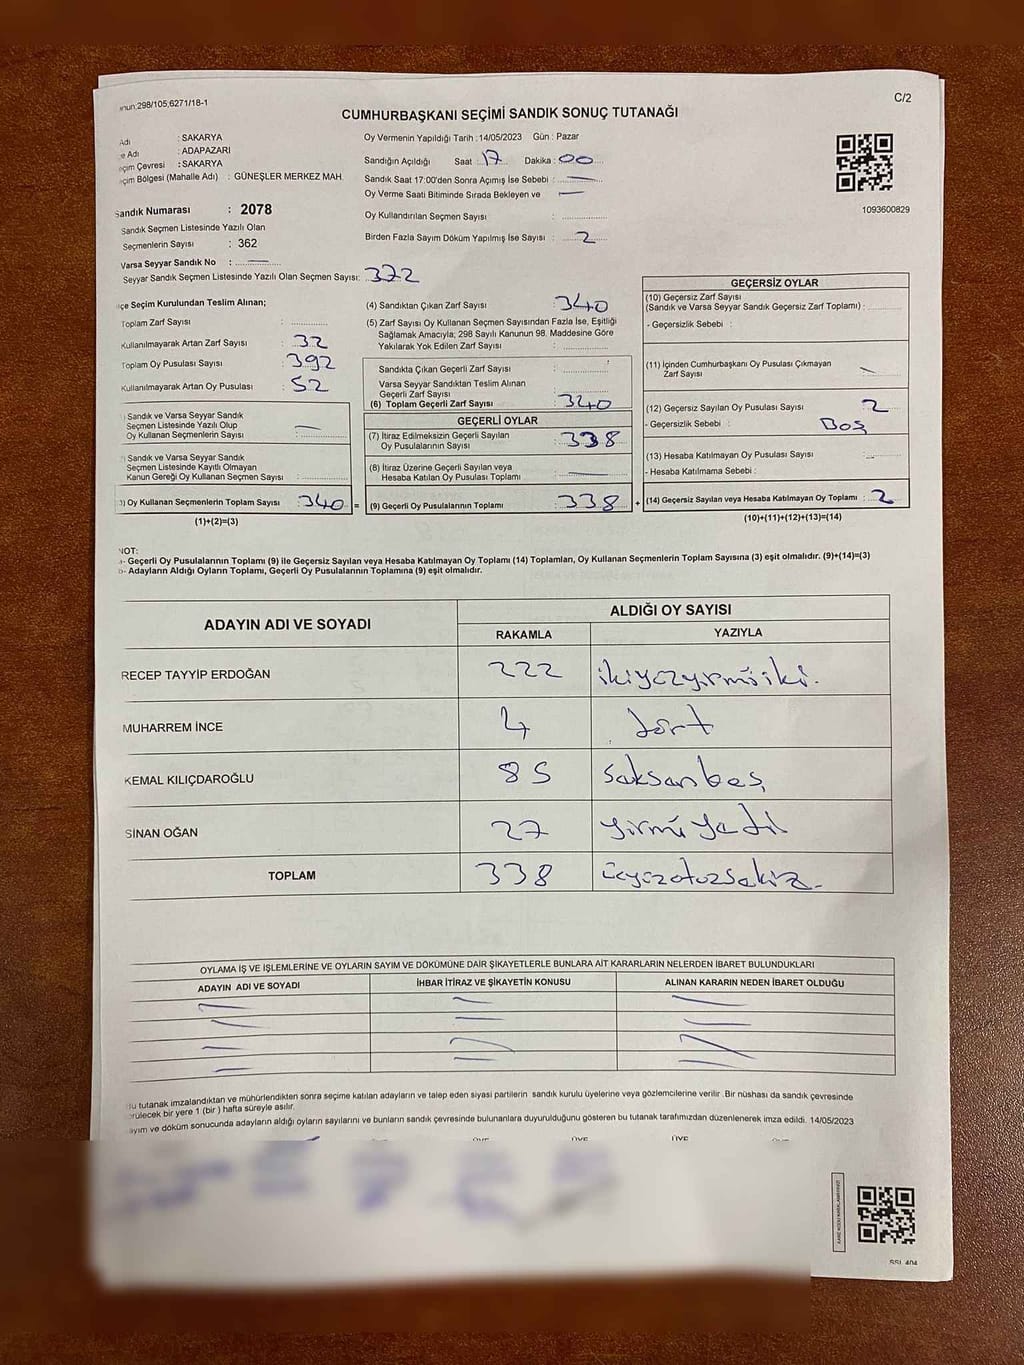 anun:298/105,6271/18-1
C/2
CUMHURBAŞKANI SEÇİMİ SANDIK SONUÇ TUTANAĞI
Adı : SAKARYA
e Adı : ADAPAZARI
eçim Çevresi : SAKARYA
eçim Bölgesi (Mahalle Adı) : GÜNEŞLER MERKEZ MAH.
Sandık Numarası : 2078
Sandık Seçmen Listesinde Yazılı Olan
Seçmenlerin Sayısı : 362
Varsa Seyyar Sandık No :
Seyyar Sandık Seçmen Listesinde Yazılı Olan Seçmen Sayısı: 372
Oy Vermenin Yapıldığı Tarih : 14/05/2023 Gün : Pazar
Sandığın Açıldığı Saat : 17 Dakika : 00
Sandık Saat 17:00'den Sonra Açımış İse Sebebi :
Oy Verme Saati Bitiminde Sırada Bekleyen ve
Oy Kullandırılan Seçmen Sayısı :
Birden Fazla Sayım Döküm Yapılmış İse Sayısı : 2
1093600829
lçe Seçim Kurulundan Teslim Alınan;
Toplam Zarf Sayısı :
Kullanılmayarak Artan Zarf Sayısı : 32
Toplam Oy Pusulası Sayısı : 392
Kullanılmayarak Artan Oy Pusulası : 52
) Sandık ve Varsa Seyyar Sandık
Seçmen Listesinde Yazılı Olup
Oy Kullanan Seçmenlerin Sayısı :
) Sandık ve Varsa Seyyar Sandık
Seçmen Listesinde Kayıtlı Olmayan
Kanun Gereği Oy Kullanan Seçmen Sayısı :
3) Oy Kullanan Seçmenlerin Toplam Sayısı : 340 =
(1)+(2)=(3)
(4) Sandıktan Çıkan Zarf Sayısı : 340
(5) Zarf Sayısı Oy Kullanan Seçmen Sayısından Fazla İse, Eşitliği
Sağlamak Amacıyla, 298 Sayılı Kanunun 98. Maddesine Göre
Yakılarak Yok Edilen Zarf Sayısı :
Sandıkta Çıkan Geçerli Zarf Sayısı :
Varsa Seyyar Sandıktan Teslim Alınan
Geçerli Zarf Sayısı :
(6) Toplam Geçerli Zarf Sayısı : 340
GEÇERLİ OYLAR
(7) İtiraz Edilmeksizin Geçerli Sayılan
Oy Pusulalarının Sayısı : 338
(8) İtiraz Üzerine Geçerli Sayılan veya
Hesaba Katılan Oy Pusulası Toplamı :
(9) Geçerli Oy Pusulalarının Toplamı : 338 +
GEÇERSİZ OYLAR
(10) Geçersiz Zarf Sayısı
(Sandık ve Varsa Seyyar Sandık Geçersiz Zarf Toplamı) :
- Geçersizlik Sebebi :
(11) İçinden Cumhurbaşkanı Oy Pusulası Çıkmayan
Zarf Sayısı :
(12) Geçersiz Sayılan Oy Pusulası Sayısı : 2
- Geçersizlik Sebebi : Boş
(13) Hesaba Katılmayan Oy Pusulası Sayısı :
- Hesaba Katılmama Sebebi :
(14) Geçersiz Sayılan veya Hesaba Katılmayan Oy Toplamı : 2
(10)+(11)+(12)+(13)=(14)
NOT:
a- Geçerli Oy Pusulalarının Toplamı (9) ile Geçersiz Sayılan veya Hesaba Katılmayan Oy Toplamı (14) Toplamları, Oy Kullanan Seçmenlerin Toplam Sayısına (3) eşit olmalıdır. (9)+(14)=(3)
b- Adayların Aldığı Oyların Toplamı, Geçerli Oy Pusulalarının Toplamına (9) eşit olmalıdır.
ADAYIN ADI VE SOYADI ALDIĞI OY SAYISI
RAKAMLA YAZIYLA
RECEP TAYYİP ERDOĞAN 222 ikiyüzyirmiiki.
MUHARREM İNCE 4 dört
KEMAL KILIÇDAROĞLU 85 Seksenbeş
SİNAN OĞAN 27 yirmiyedi
TOPLAM 338 üçyüzotuzsekiz.
OYLAMA İŞ VE İŞLEMLERİNE VE OYLARIN SAYIM VE DÖKÜMÜNE DAİR ŞİKAYETLERLE BUNLARA AİT KARARLARIN NELERDEN İBARET BULUNDUKLARI
ADAYIN ADI VE SOYADI İHBAR İTİRAZ VE ŞİKAYETİN KONUSU ALINAN KARARIN NEDEN İBARET OLDUĞU
Bu tutanak imzalandıktan ve mühürlendikten sonra seçime katılan adayların ve talep eden siyasi partilerin sandık kurulu üyelerine veya gözlemcilerine verilir. Bir nüshası da sandık çevresinde
örülecek bir yere 1 (bir ) hafta süreyle asılır.
ayım ve döküm sonucunda adayların aldığı oyların sayılarını ve bunların sandık çevresinde bulunanlara duyurulduğunu gösteren bu tutanak tarafımızdan düzenlenerek imza edildi. 14/05/2023
ÜYE ÜYE ÜYE